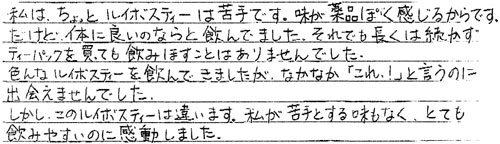 私は、ちょっとルイボスティーは苦手です。味が薬品ぽく感じるからです。
だけど、体に良いのならと飲んでました。それでも長くは続かず
ティーパックを買っても飲みほすことはありませんでした。
色んなルイボスティーを飲んできましたが、なかなか「これ!」と言うのに
出会えませんでした。
しかし、このルイボスティーは違います。私が苦手とする味もなく、とても
飲みやすいのに感動しました。